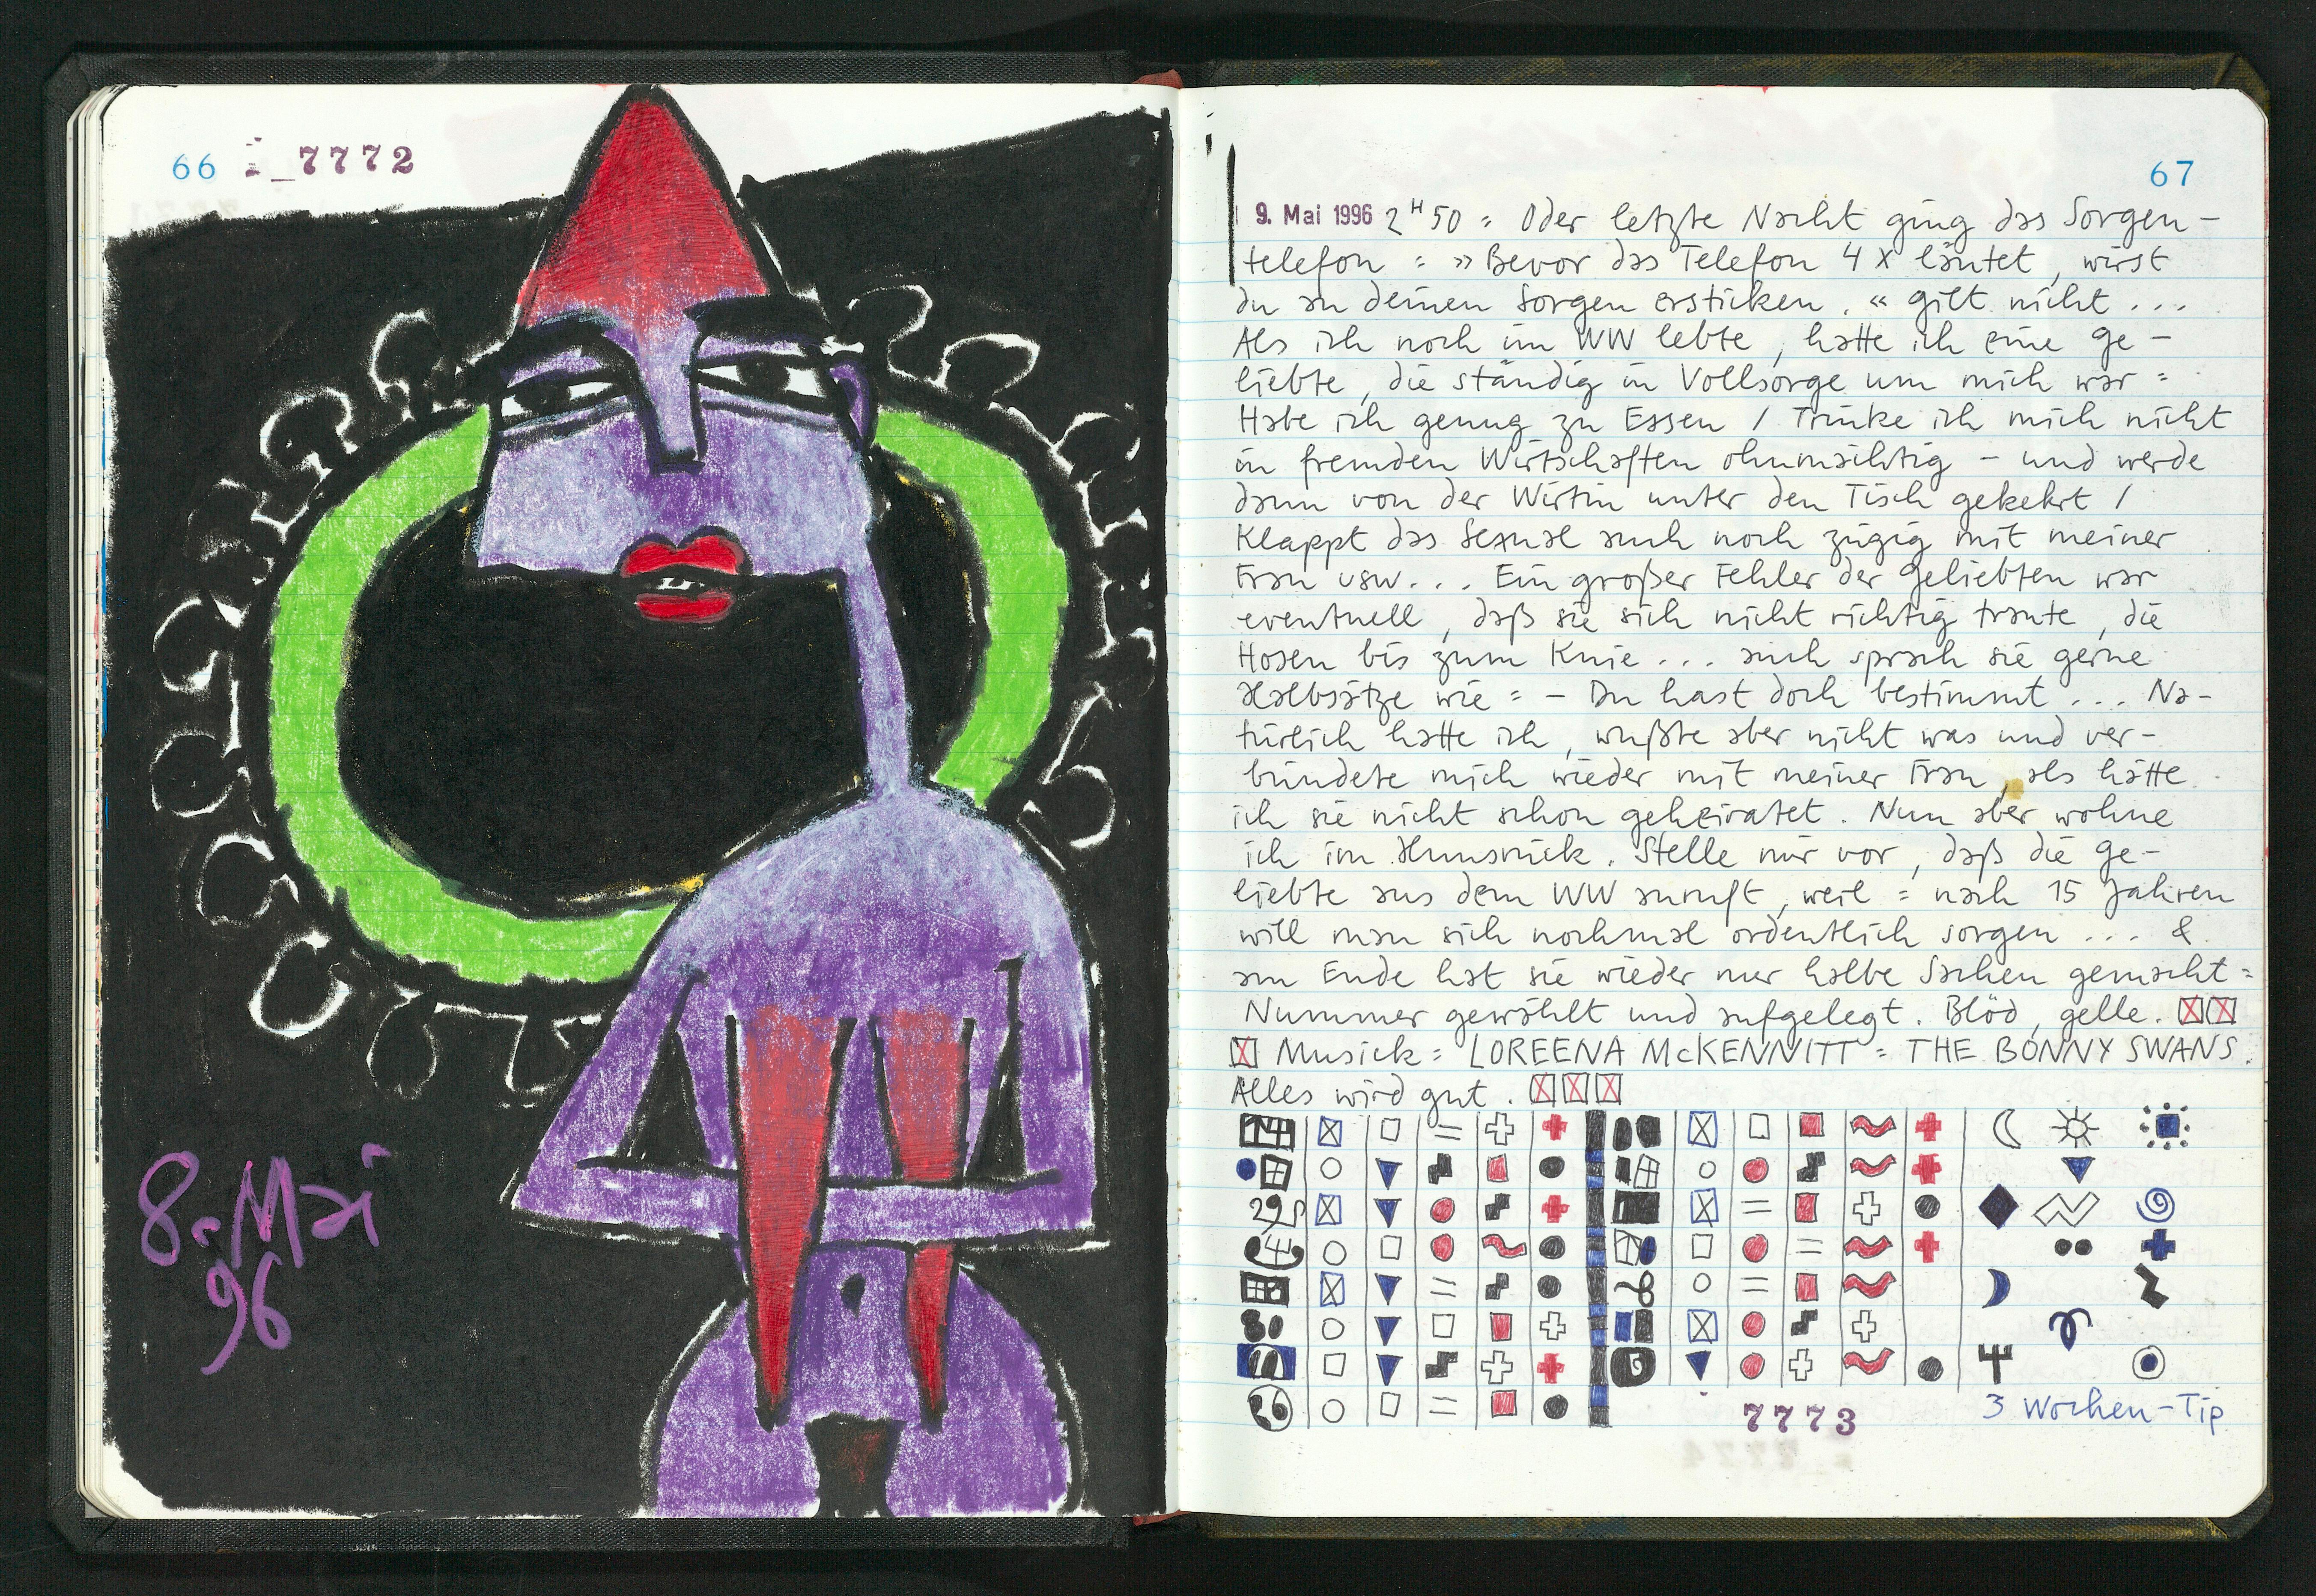 66 7772
8. Mai
96
67
9. Mai 1996 2 H 50 = Oder letzte Nacht ging das Sorgen-
telefon = »Bevor das Telefon 4 x läutet, wirst
du an deinen Sorgen ersticken.« gilt nicht ...
Als ich noch im WW lebte, hatte ich eine Ge-
liebte, die ständig in Vollsorge um mich war =
Habe ich genug zu Essen / Trinke ich mich nicht
in fremden Wirtschaften ohnmächtig - und werde
dann von der Wirtin unter den Tisch gekehrt /
Klappt das Sexual auch noch zügig mit meiner
Frau usw... Ein großer Fehler der Geliebten war
eventuell, daß sie sich nicht richtig traute, die
Hosen bis zum Knie ... auch sprach sie gerne
Halbsätze wie = - Du hast doch bestimmt ... Na-
türlich hatte ich, wußte aber nicht was und ver-
bündete mich wieder mit meiner Frau, als hätte
ich sie nicht schon geheiratet. Nun aber wohne
ich im Hunsrück. Stelle mir vor, daß die Ge-
liebte aus dem WW anruft, weil = nach 15 Jahren
will man sich nochmal ordentlich sorgen ... &
am Ende hat sie wieder nur halbe Sachen gemacht =
Nummer gewählt und aufgelegt. Blöd, gelle.
Musick = LOREENA McKENNITT = THE BONNY SWANS.
Alles wird gut.
7773 3 Wochen-Tip